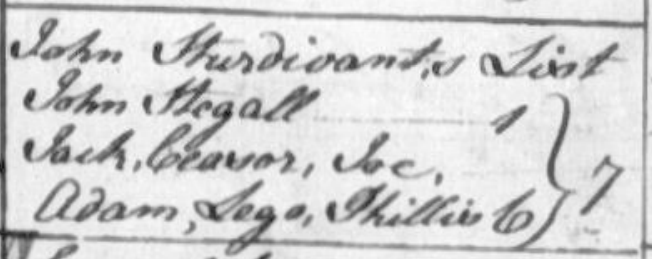 John Sturdivant,s List
John Stegall 1
Jack, Ceasor, Joe, } 7
Adam, Lego, Phillis 6